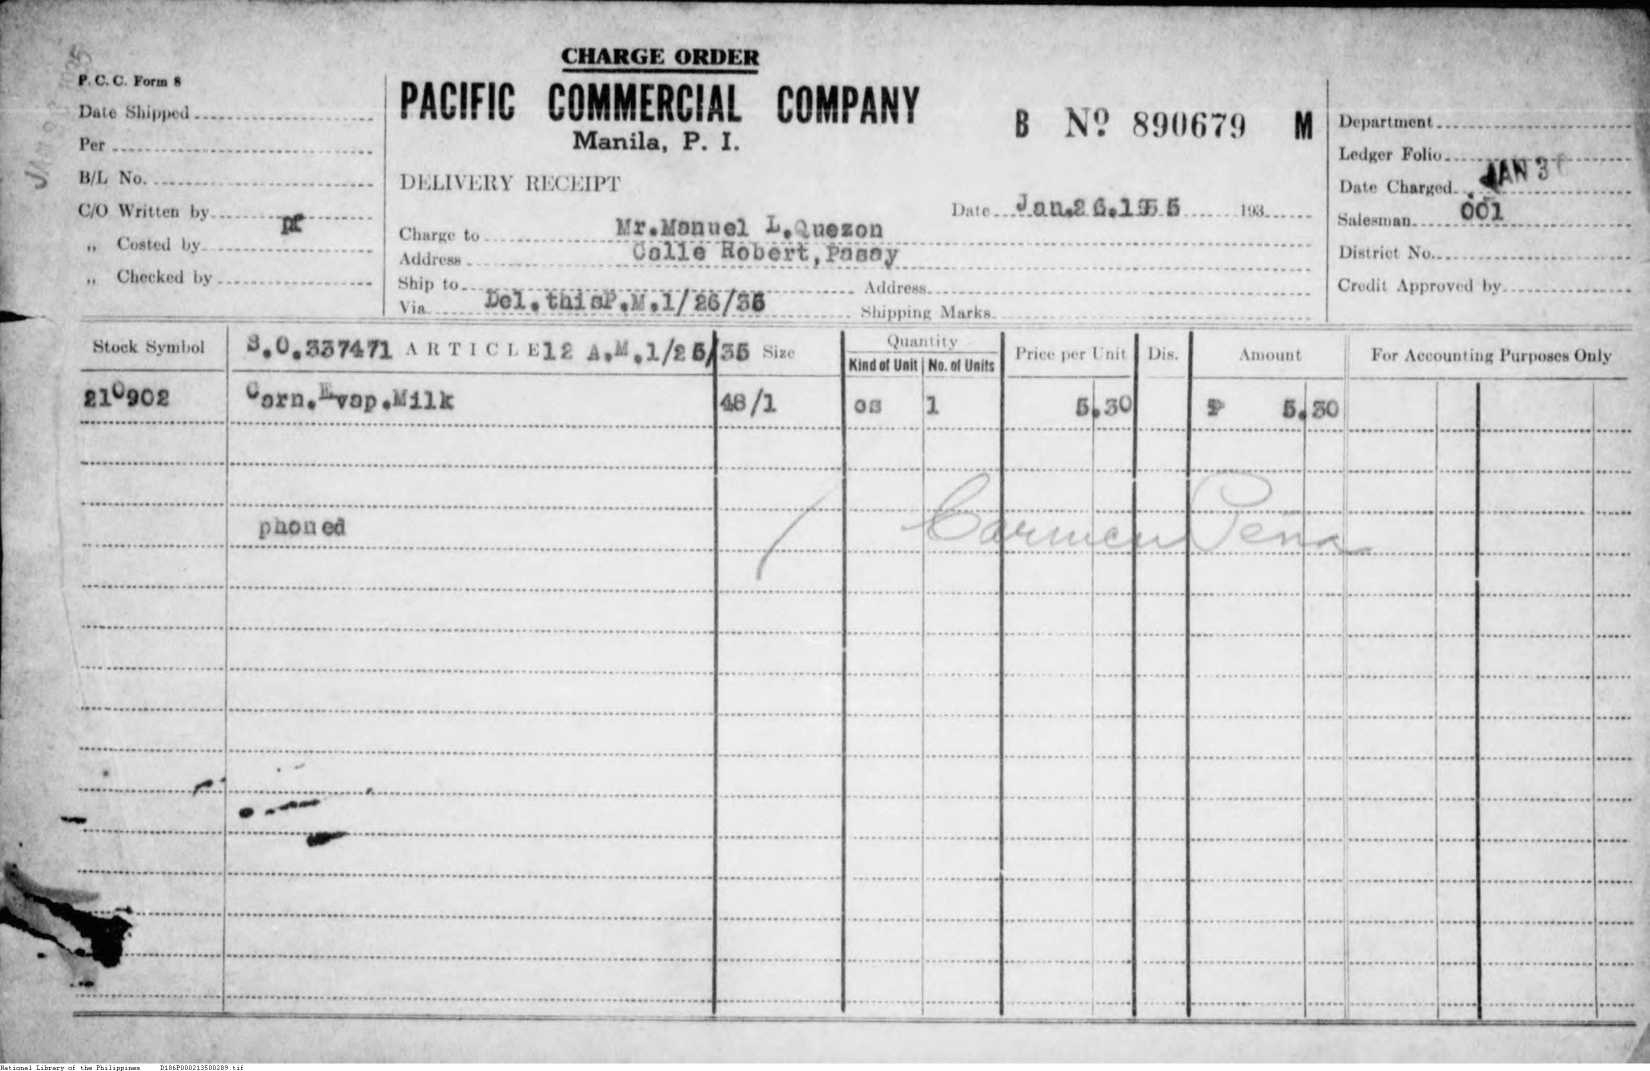 CHARGE ORDER
P. C. C. Form 8
PACIFIC COMMERCIAL COMPANY
Manila, P. I.
B Nº 890679 M
Date Shipped
Per
B/L No.
C/O Written by
„ Costed by
„ Checked by
DELIVERY RECEIPT
Date Jan.26.1935 193
Charge to Mr.Manuel L.Quezon
Address Calle Robert,Pasay
Ship to Address
Via Del.thisP.M.1/26/35 Shipping Marks
Department
Ledger Folio
Date Charged JAN 3
Salesman 001
District No.
Credit Approved by
Stock Symbol S.O.337471 ARTICLE 12 A.M.1/26/35 Size Quantity Price per Unit Dis. Amount For Accounting Purposes Only
Kind of Unit No. of Units
210902 Carn.Evap.Milk 48/1 cs 1 5.30 P 5.30
phoned Carmen Peña
National Library of the Philippines D186P000213500289.tif